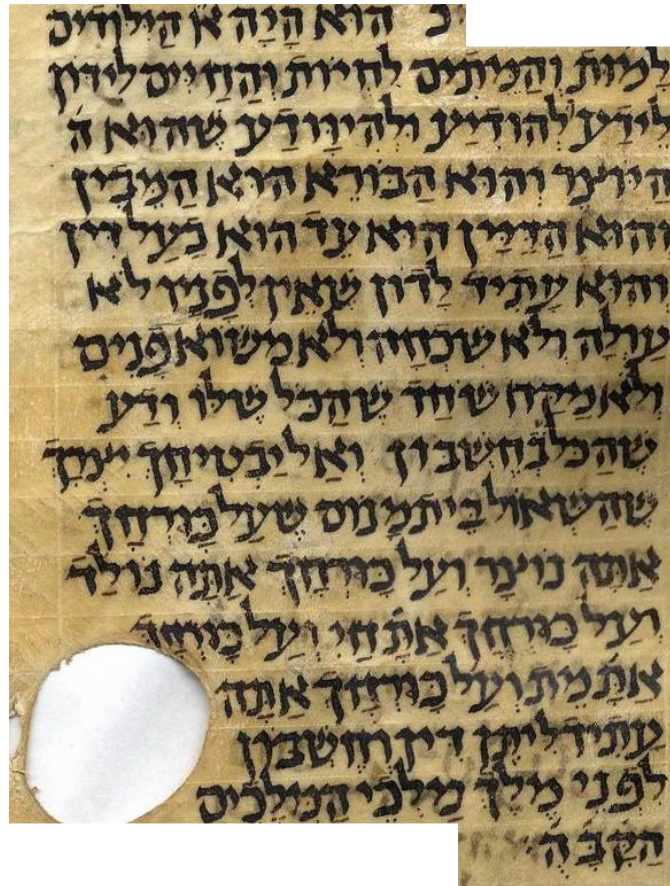 כ הוא היה או הילודים
למות והמתים לחיות והחיים לידון
לידע להודיע ולהיוודע שהוא ה
היוצר והוא הבורא הוא המבין
והוא הדיין הוא עד הוא בעל דין
והוא עתיד לדון שאין לפניו לא
עולה ולא שכחה ולא משוא פנים
ולא מקח שחד שהכל שלו ודע
שהכל בחשבון ואל יבטיחך יצרך
שהשאול בית מנוס שעל כורחך
אתה נוצר ועל כורחך אתה נולד
ועל כורחך את חי ועל כורחך
את מת ועל כורחך אתה
עתיד ליתן דין וחושבון
לפני מלך מלכי המלכים
הקבה